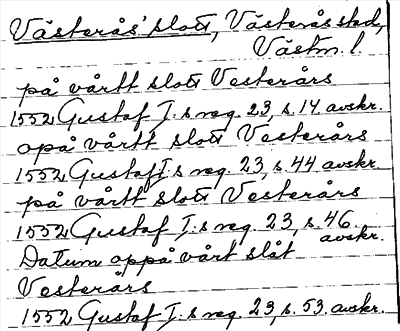 Västerås' slott, Västerås stad,
Västm. l.
på vårtt slott Vesterårs
1552 Gustaf I:s reg. 23, s. 14 avskr.
opå vårtt slott Vesterårs
1552 Gustaf I:s reg. 23, s. 44 avskr.
på vårtt slott Vesterårs
1552 Gustaf I:s reg. 23, s. 46 avskr.
Datum oppå vårt slåt
Vesterårs
1552 Gustaf I:s reg. 23, s. 53. avskr.